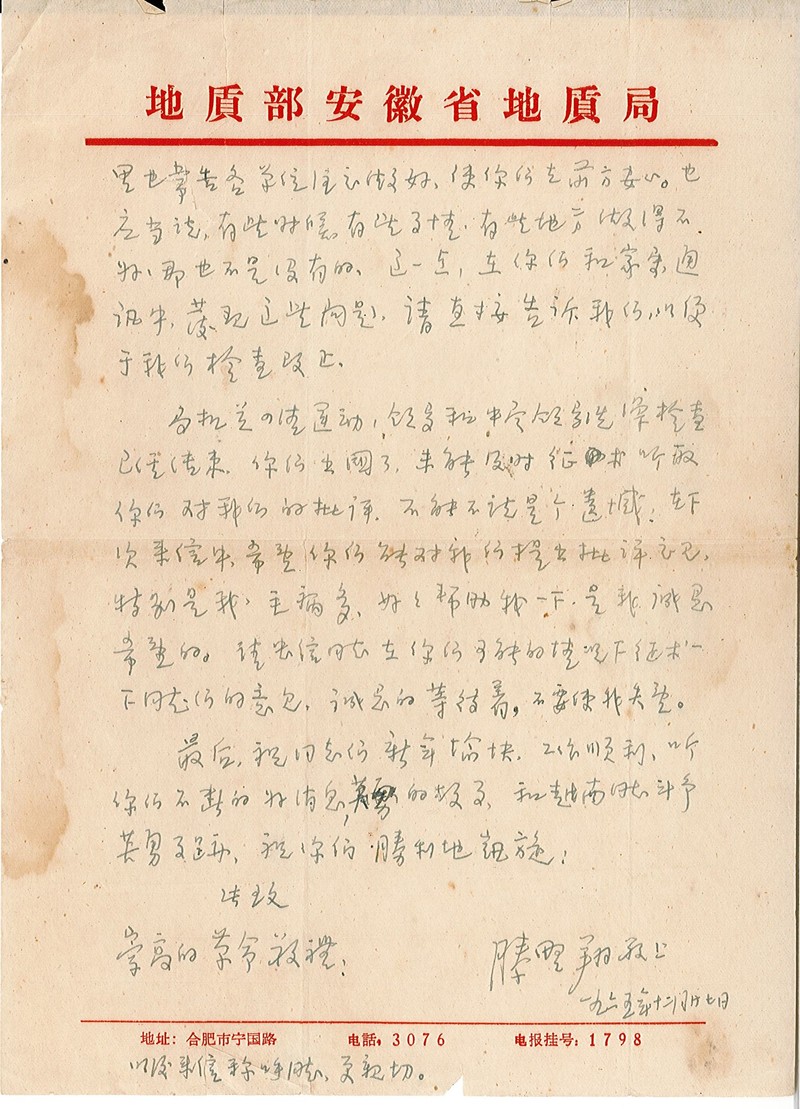 地质部安徽省地质局
里也常告各单位注意做好,使你们在前方安心。也
应当说,有些时候,有些事情,有些地方做得不
好,那也不是没有的。这一点,在你们和家属通
讯中,发现这些问题,请直接告诉我们,以便
于我们检查改正。
局机关四清运动,领导和中层领导洗澡检查
已经结束。你们出国了,未能及时征求听取
你们对我们的批评,不能不说是个遗憾;在下
次来信中,希望你们能对我们提出批评意见,
特别是我,毛病多,好好帮助我一下,是我诚恳
希望的。请出信同志在你们可能的情况下征求一
下同志们的意见,诚恳的等待着,不要使我失望。
最后,祝同志们新年愉快,工作顺利,听
你们不断的好消息,英勇的故事,和越南同志斗争
英勇事迹,祝你们胜利地凯旋!
此致
崇高的革命敬礼!
滕野翔敬上
一九六五年十二月廿七日
地址:合肥市宁国路 电话:3076 电报挂号:1798
以后来信称呼同志,更亲切。